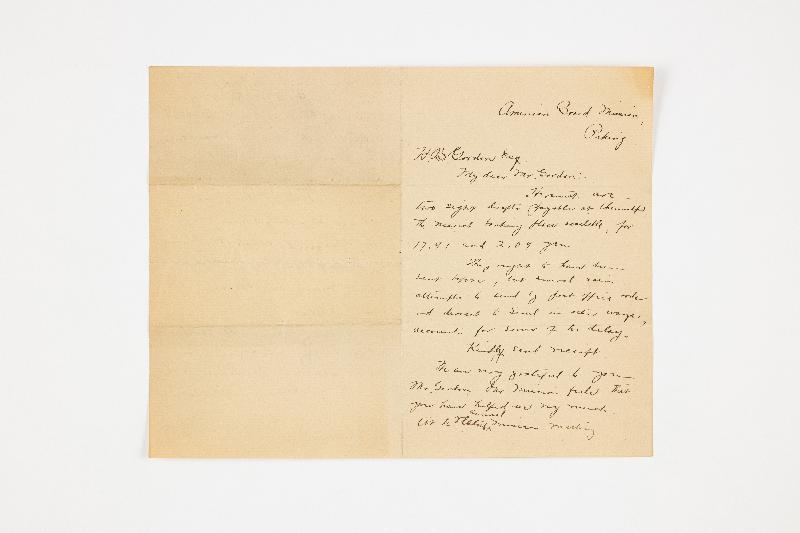 American Board Mission,
Peking
H. B. Gordon Esq.
My dear Mr. Gordon:-
Herewith are
two sight drafts (payable at Chemulpo
the nearest banking place available, for
17.91 and 2.09 yen
They ought to have been
sent before, but several vain
attempts to send by post office order
and to send in other ways,
account for some of the delay.
Kindly send receipt.
We are very grateful to you
Mr. Gordon. Our Mission feels that
you have helped us very much.
At the annual Mission meeting